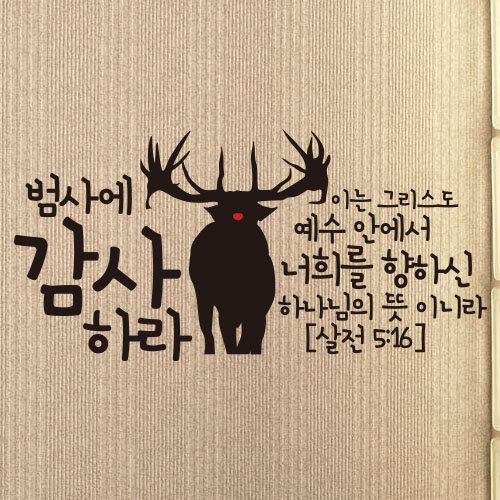 범사에
감사
하라
이는 그리스도
예수 안에서
너희를 향하신
하나님의 뜻 이니라
[살전 5:16]